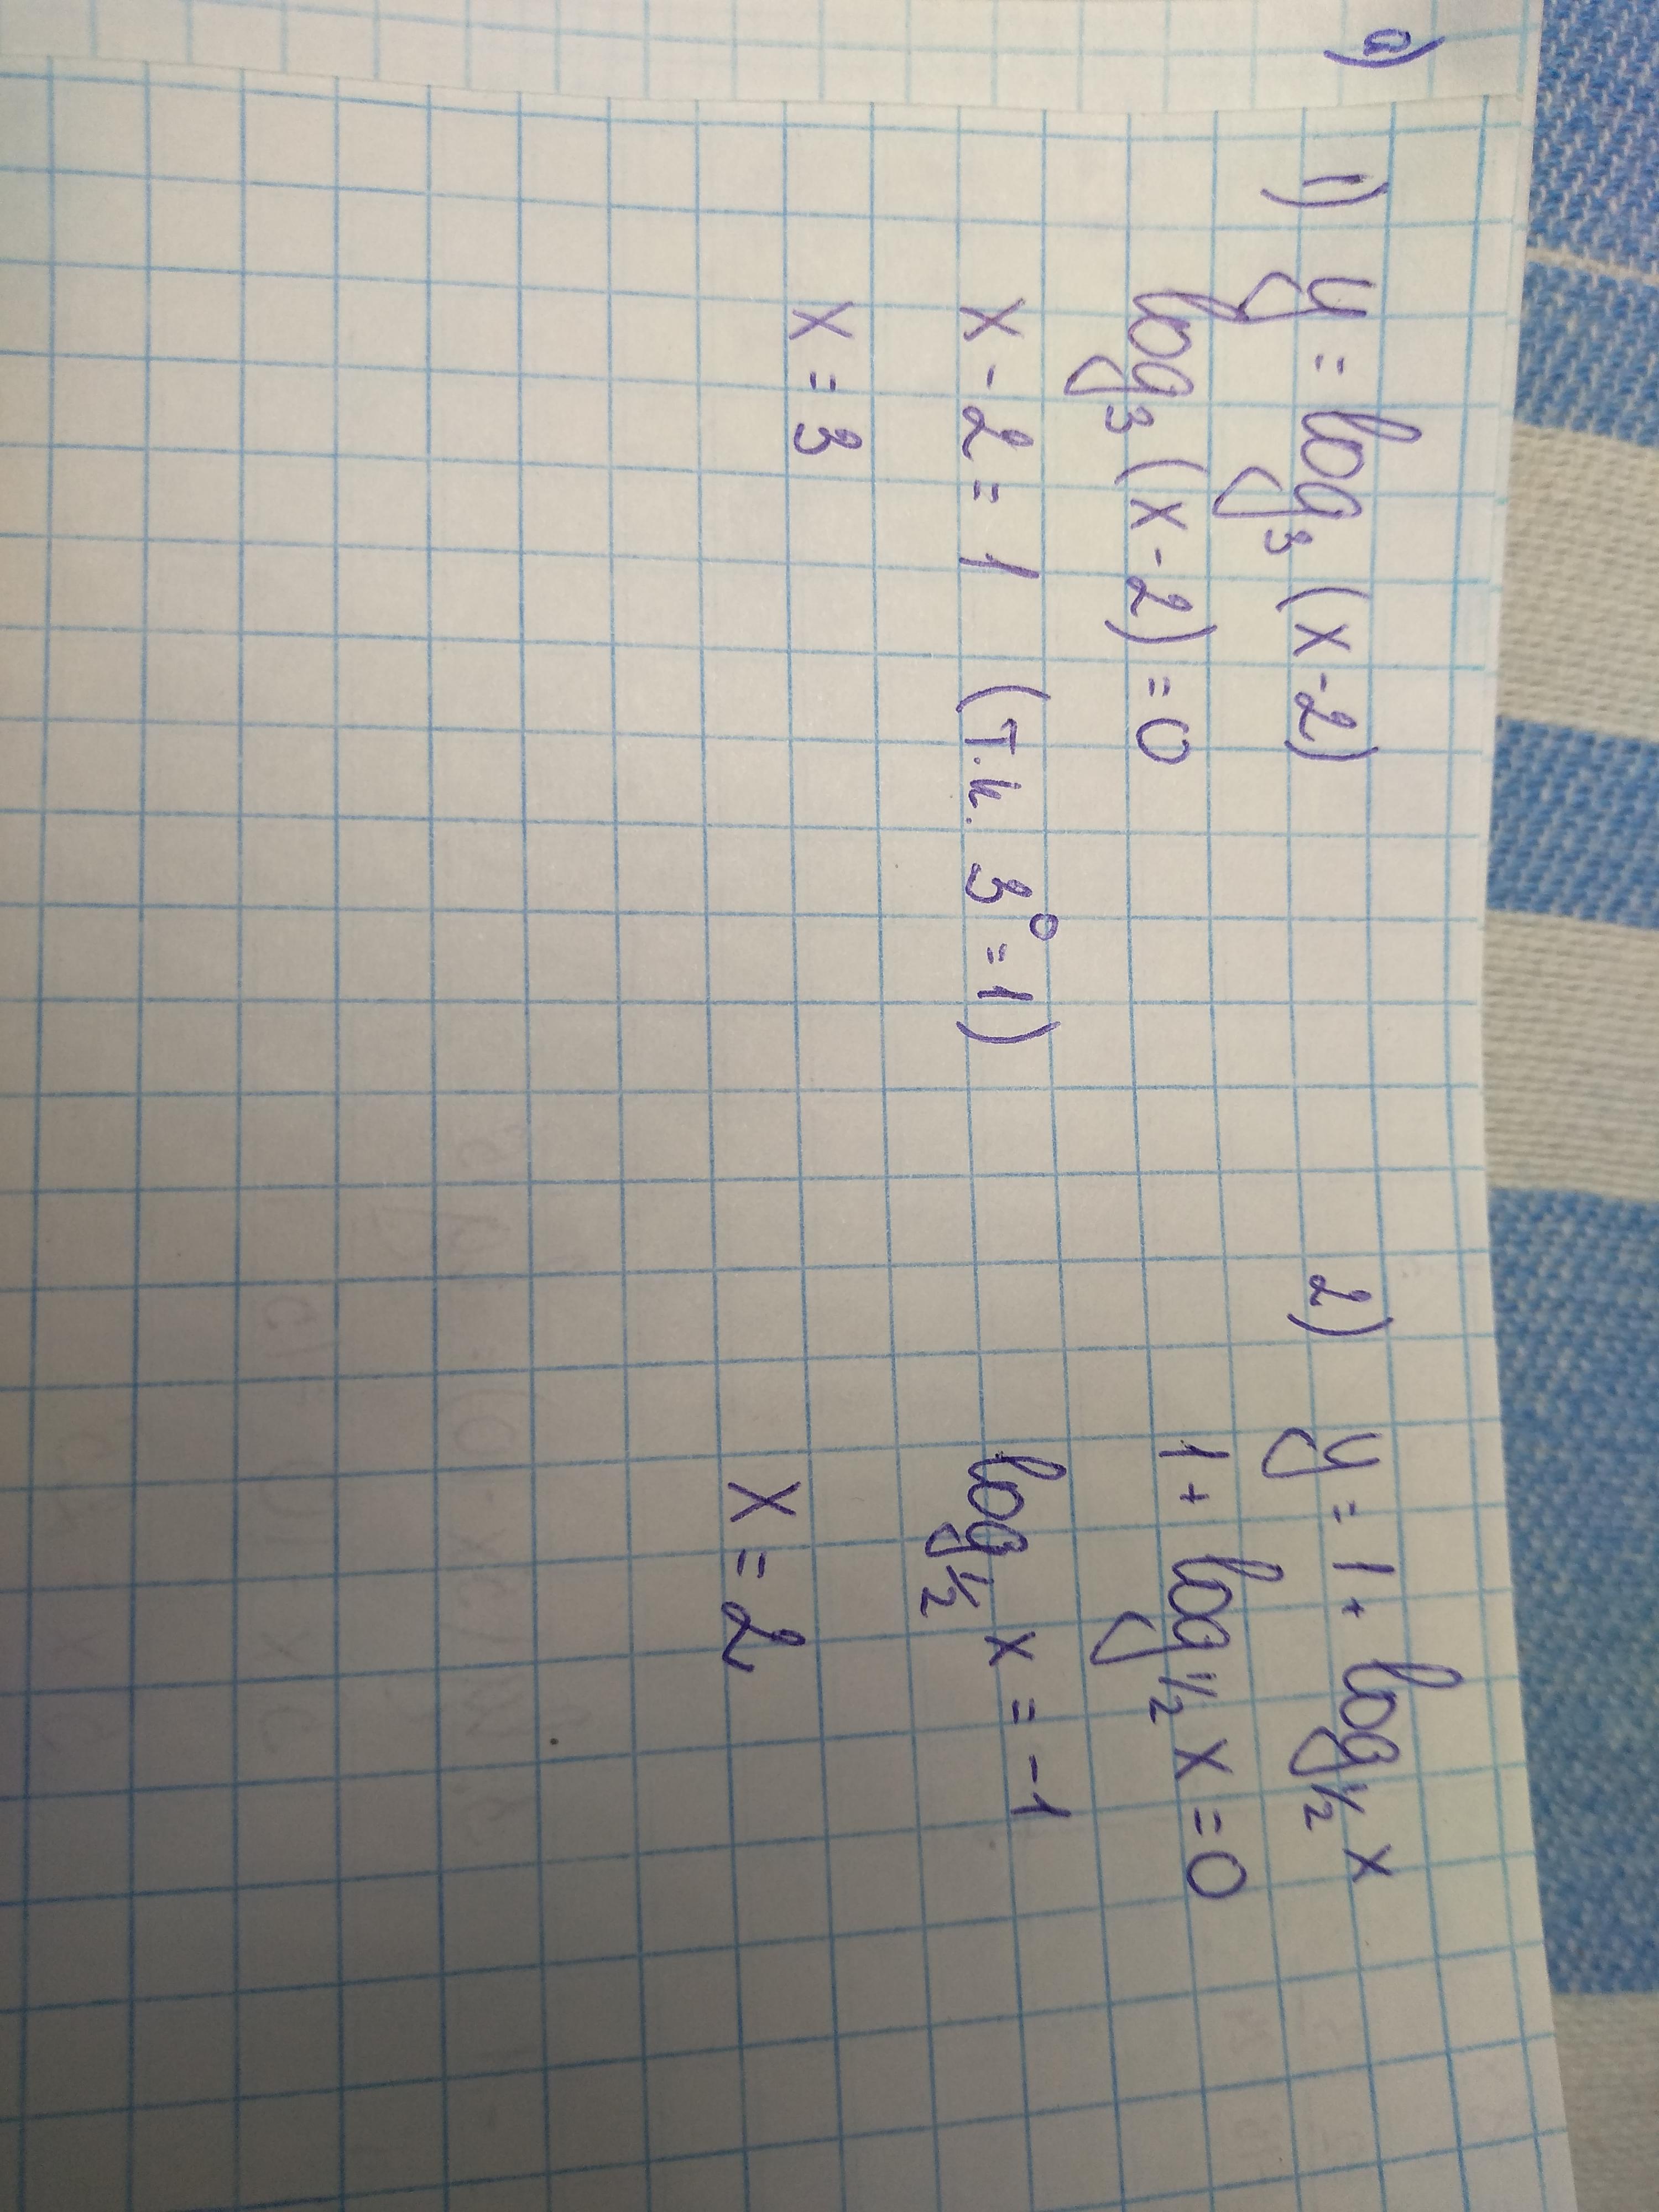 а)
1) y = log₃ (x-2)
log₃ (x-2) = 0
x - 2 = 1 (т.к. 3⁰ = 1)
x = 3
2) y = 1 + log½ x
1 + log½ x = 0
log½ x = -1
x = 2